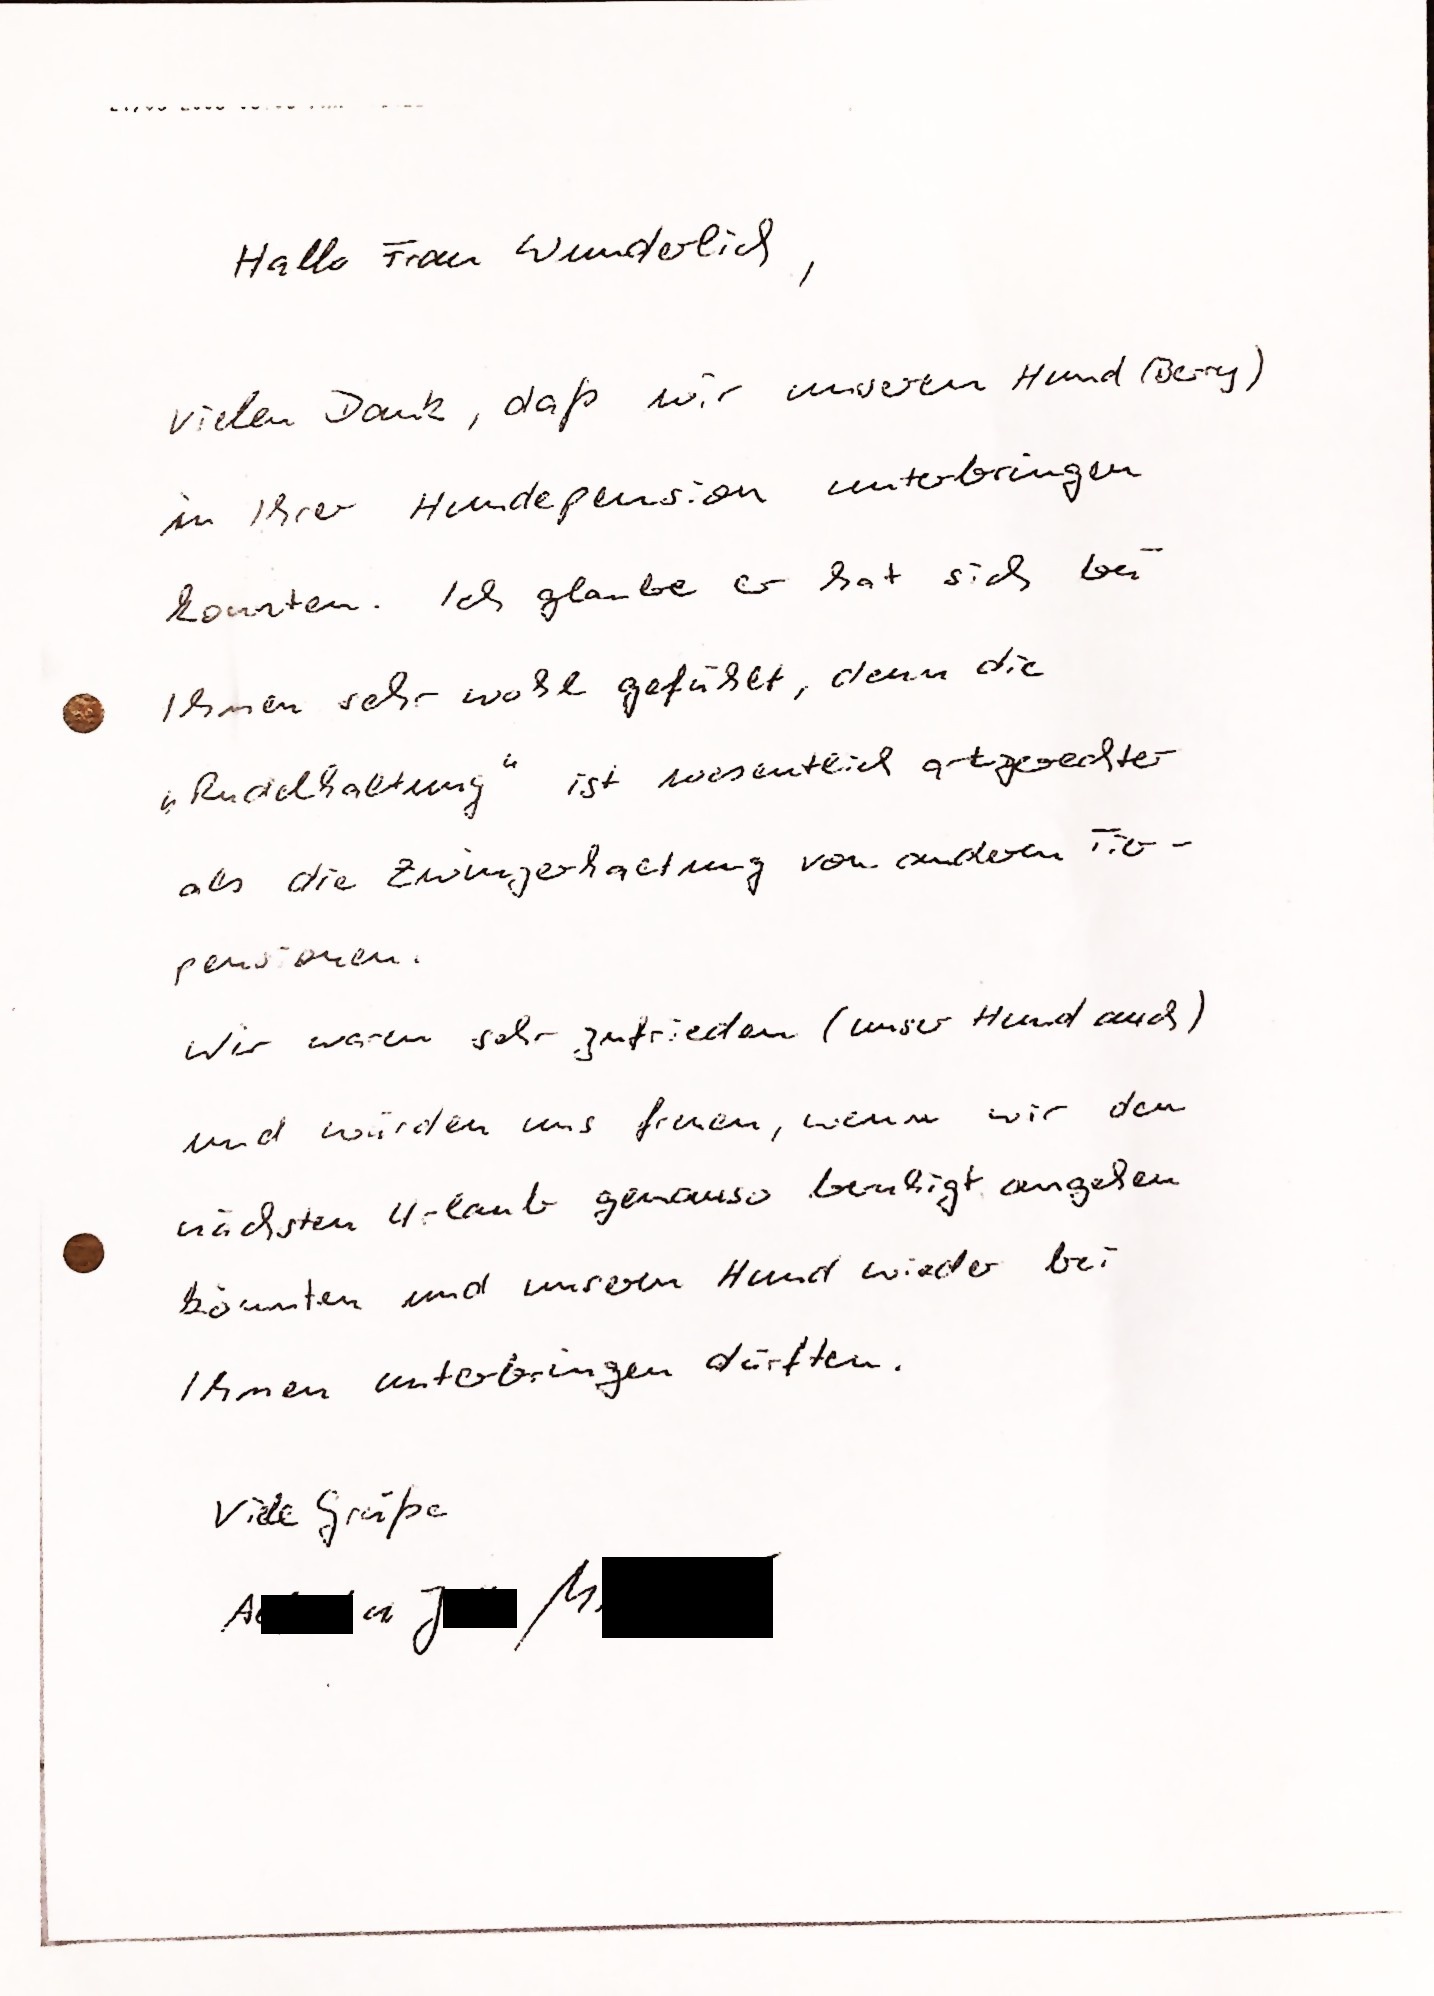 Hallo Frau Wunderlich,
vielen Dank, daß wir unseren Hund (Berry)
in Ihrer Hundepension unterbringen
konnten. Ich glaube er hat sich bei
Ihnen sehr wohl gefühlt, denn die
„Rudelhaltung“ ist wesentlich artgerechter
als die Zwingerhaltung von anderen Tier-
pensionen.
Wir waren sehr zufrieden (unser Hund auch)
und würden uns freuen, wenn wir den
nächsten Urlaub genauso beruhigt angehen
könnten und unseren Hund wieder bei
Ihnen unterbringen dürften.
Viele Grüße